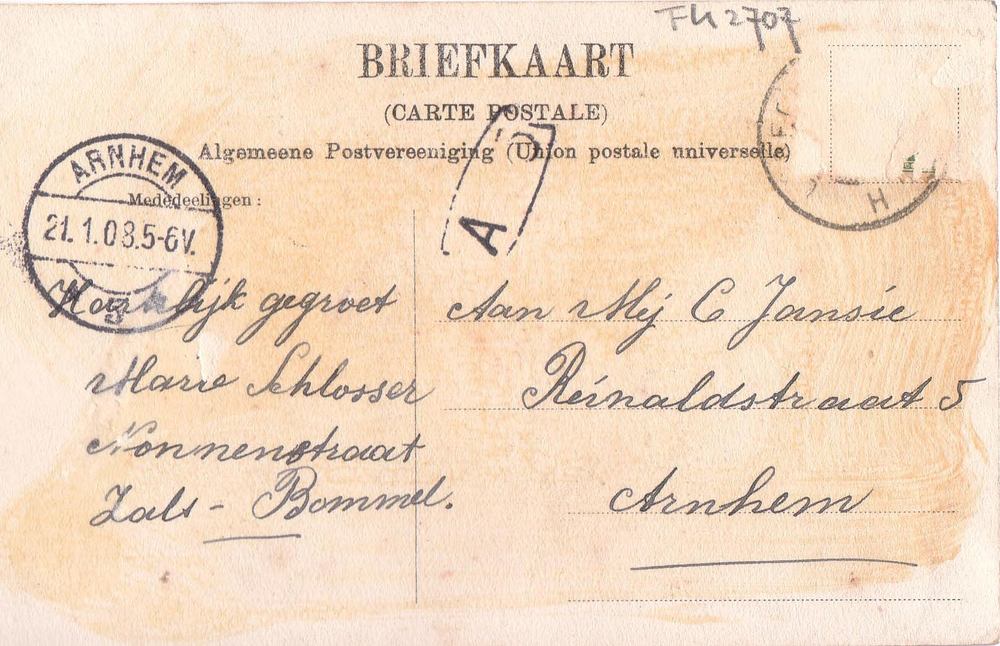 FK2707
BRIEFKAART
(CARTE POSTALE)
Algemeene Postvereeniging (Union postale universelle)
Mededeelingen:
ARNHEM
21.1.08.5-6V.
5
A
H
Hartelijk gegroet
Marie Schlosser
Nonnenstraat
Zalt-Bommel.
Aan Mej C Jansie
Reinaldstraat 5
Arnhem